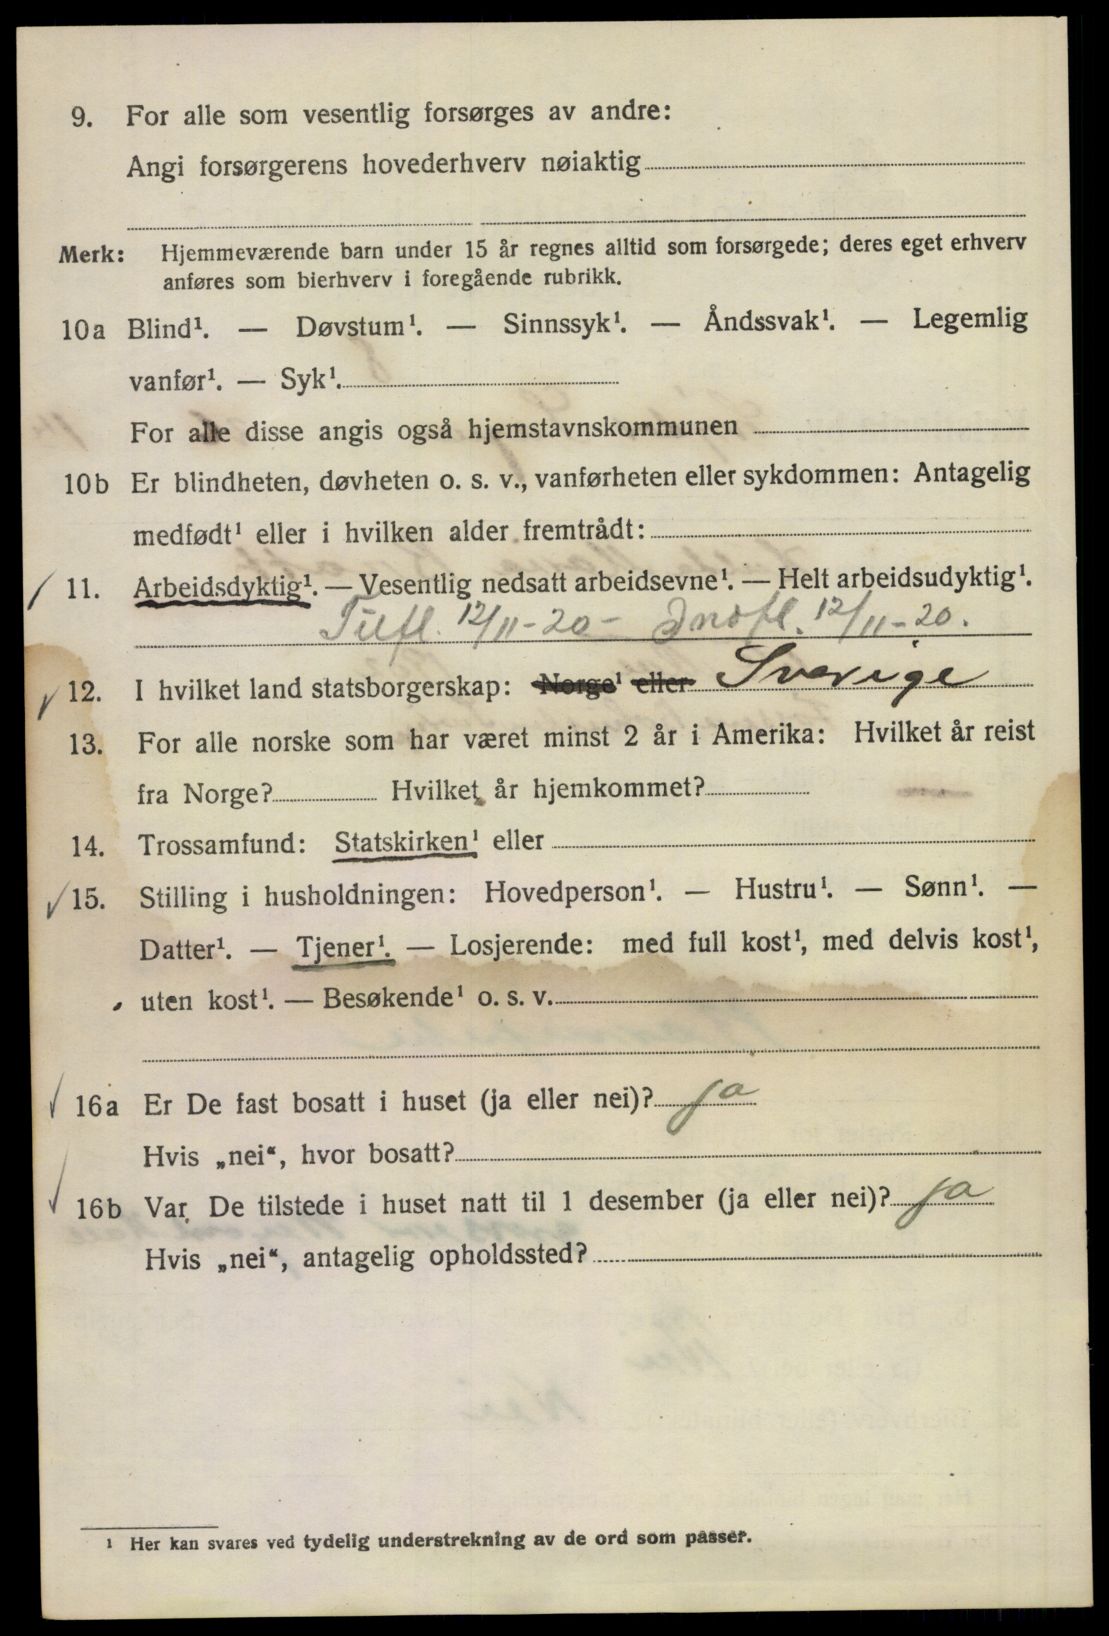 9. For alle som vesentlig forsørges av andre:
Angi forsørgerens hovederhverv nøiaktig
Merk: Hjemmeværende barn under 15 år regnes alltid som forsørgede; deres eget erhverv
anføres som bierhverv i foregående rubrikk.
10a Blind¹. — Døvstum¹. — Sinnssyk¹. — Åndssvak¹. — Legemlig
vanfør¹. — Syk¹.
For alle disse angis også hjemstavnskommunen
10b Er blindheten, døvheten o. s. v., vanførheten eller sykdommen: Antagelig
medfødt¹ eller i hvilken alder fremtrådt:
11. Arbeidsdyktig¹. — Vesentlig nedsatt arbeidsevne¹. — Helt arbeidsudyktig¹.
Tilfl. 12/11-20- Indfl. 12/11-20.
12. I hvilket land statsborgerskap: Norge¹ eller Sverige
13. For alle norske som har været minst 2 år i Amerika: Hvilket år reist
fra Norge? Hvilket år hjemkommet?
14. Trossamfund: Statskirken¹ eller
15. Stilling i husholdningen: Hovedperson¹. — Hustru¹. — Sønn¹. —
Datter¹. — Tjener¹. — Losjerende: med full kost¹, med delvis kost¹,
uten kost¹. — Besøkende¹ o. s. v.
16a Er De fast bosatt i huset (ja eller nei)? ja
Hvis „nei“, hvor bosatt?
16b Var De tilstede i huset natt til 1 desember (ja eller nei)? ja
Hvis „nei“, antagelig opholdssted?
¹ Her kan svares ved tydelig understrekning av de ord som passer.